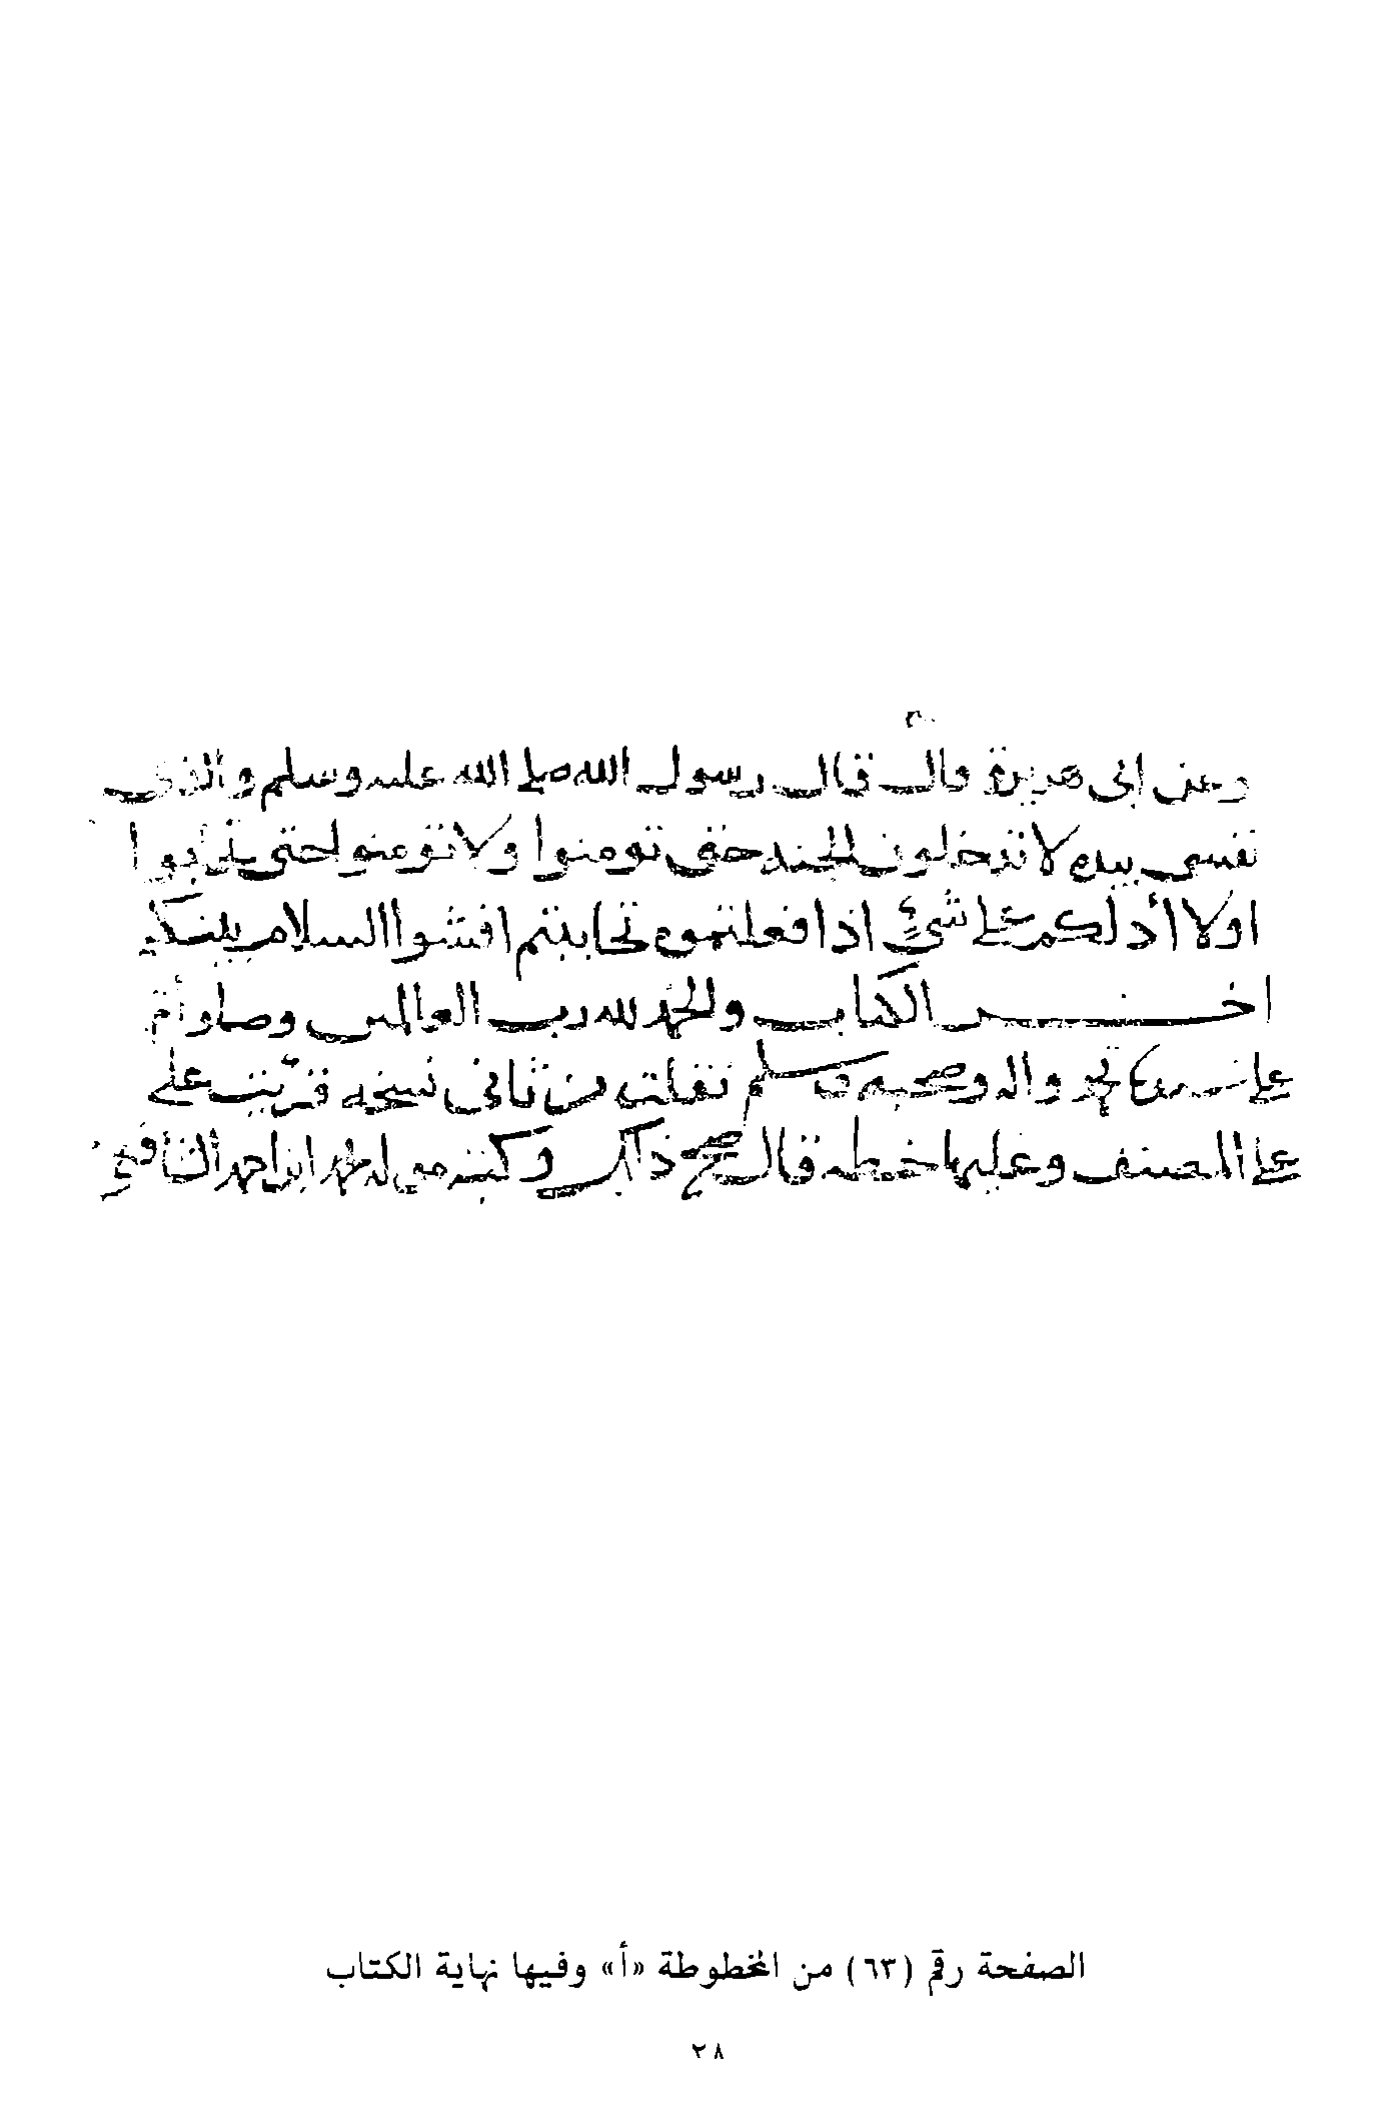 وعن ابى هريرة قال قال رسول الله صلى الله عليه وسلم والذى
نفسى بيده لا تدخلون الجنه حتى تومنوا ولا تومنوا حتى تحابوا
اولا أدلكم على شئ اذا فعلتموه تحاببتم افشوا السلام بينكم
اخر الكتاب والحمد لله رب العالمين وصلواته
على سيدنا محمد واله وصحبه وسلم نقلت من ثانى نسخه قريت على
على المصنف وعليها خطه قال صحح ذلك وكتبه محمد ابن احمد الشافعى
الصفحة رقم (٦٣) من المخطوطة «أ» وفيها نهاية الكتاب
٢٨